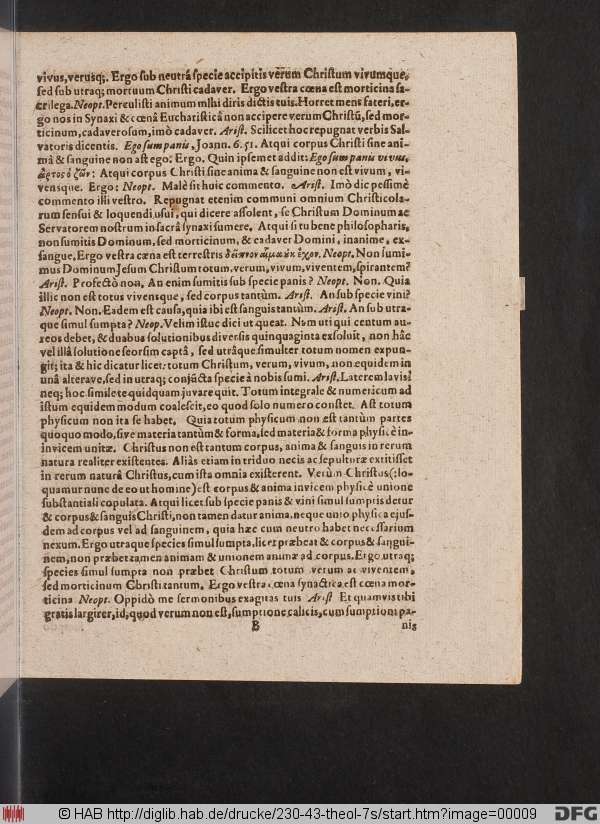 vivus, verusq;. Ergo sub neutrâ specie accipitis verum Christum vivumque,
sed sub utraq; mortuum Christi cadaver. Ergo vestra cœna est morticina sa-
crilega. Neopt. Perculisti animum mihi diris dictis tuis. Horret mens fateri, er-
go nos in Synaxi & cœnâ Eucharisticâ non accipere verum Christũ, sed mor-
ticinum, cadaverosum, imò cadaver. Arist. Scilicet hoc repugnat verbis Sal-
vatoris dicentis. Ego sum panis, Joann. 6. 51. Atqui corpus Christi sine ani-
mâ & sanguine non ast ego: Ergo. Quin ipsemet addit: Ego sum panis vivus,
ἄρτος ὁ ζῶν: Atqui corpus Christi sine anima & sanguine non est vivum, vi-
vensque. Ergo: Neopt. Malè sit huic commento. Arist. Imò dic pessimè
commento illi vestro. Repugnat etenim communi omnium Christicola-
rum sensui & loquendi usui, qui dicere assolent, se Christum Dominum ac
Servatorem nostrum in sacrâ synaxi sumere. Atqui si tu bene philosopharis,
non sumitis Dominum, sed morticinum, & cadaver Domini, inanime, ex-
sangue, Ergo vestra cæna est terrestris δεῖπνον αἷμα ὐκ ἔχον. Neopt. Non sumi-
mus Dominum Jesum Christum totum, verum, vivum, viventem, spirantem?
Arist. Profectò non, An enim sumitis sub specie panis? Neopt. Non. Quia
illic non est totus vivensque, sed corpus tantùm. Arist. An sub specie vini?
Neopt. Non. Eadem est causa, quia ibi est sanguis tantùm. Arist. An sub utra-
que simul sumpta? Neop. Velim istuc dici ut queat. Nam uti qui centum au-
reos debet, & duabus solutionibus diversis quinquaginta exsoluit, non hâc
vel illâ solutione seorsim captâ, sed utrâque simulter totum nomen expun-
git; ita & hic dicatur licet: totum Christum, verum, vivum, non equidem in
unâ alterave, sed in utraq; conjũcta specie à nobis sumi. Arist. Laterem lavisi
neq; hoc simile te quidquam juvare quit. Totum integrale & numericum ad
istum equidem modum coalescit, eo quod solo numero constet. Ast totum
physicum non ita se habet. Quia totum physicum non est tantùm partes
quoquo modo, sive materia tantùm & forma, sed materia & forma physicè in-
invicem unitæ. Christus non est tantum corpus, anima & sanguis in rerum
natura realiter existentes. Aliàs etiam in triduo necis ac sepulturæ extitisset
in rerum naturâ Christus, cum ista omnia existerent. Verùm Christus (: lo-
quamur nunc de eo ut homine) est corpus & anima invicem physicè unione
substantiali copulata. Atqui licet sub specie panis & vini simul sumptis detur
& corpus & sanguis Christi, non tamen datur anima. neque unio physica ejus-
dem ad corpus vel ad sanguinem, quia hæc cum neutro habet necessarium
nexum. Ergo utraque species simul sumpta, licet præbeat & corpus & sangui-
nem, non præbet tamen animam & unionem animæ ad corpus. Ergo utraq;
species simul sumpta non præbet Christum totum verum ac viventem,
sed morticinum Christi tantum. Ergo vestra cœna synactica est cœna mor-
ticina Neopt. Oppidò me sermonibus exagitas tuis Arist Et quamvis tibi
gratis largirer, id, quod verum non est, sumptione calicis, cum sumptioni pa-
B nis
© HAB http://diglib.hab.de/drucke/230-43-theol-7s/start.htm?image=00009
DFG